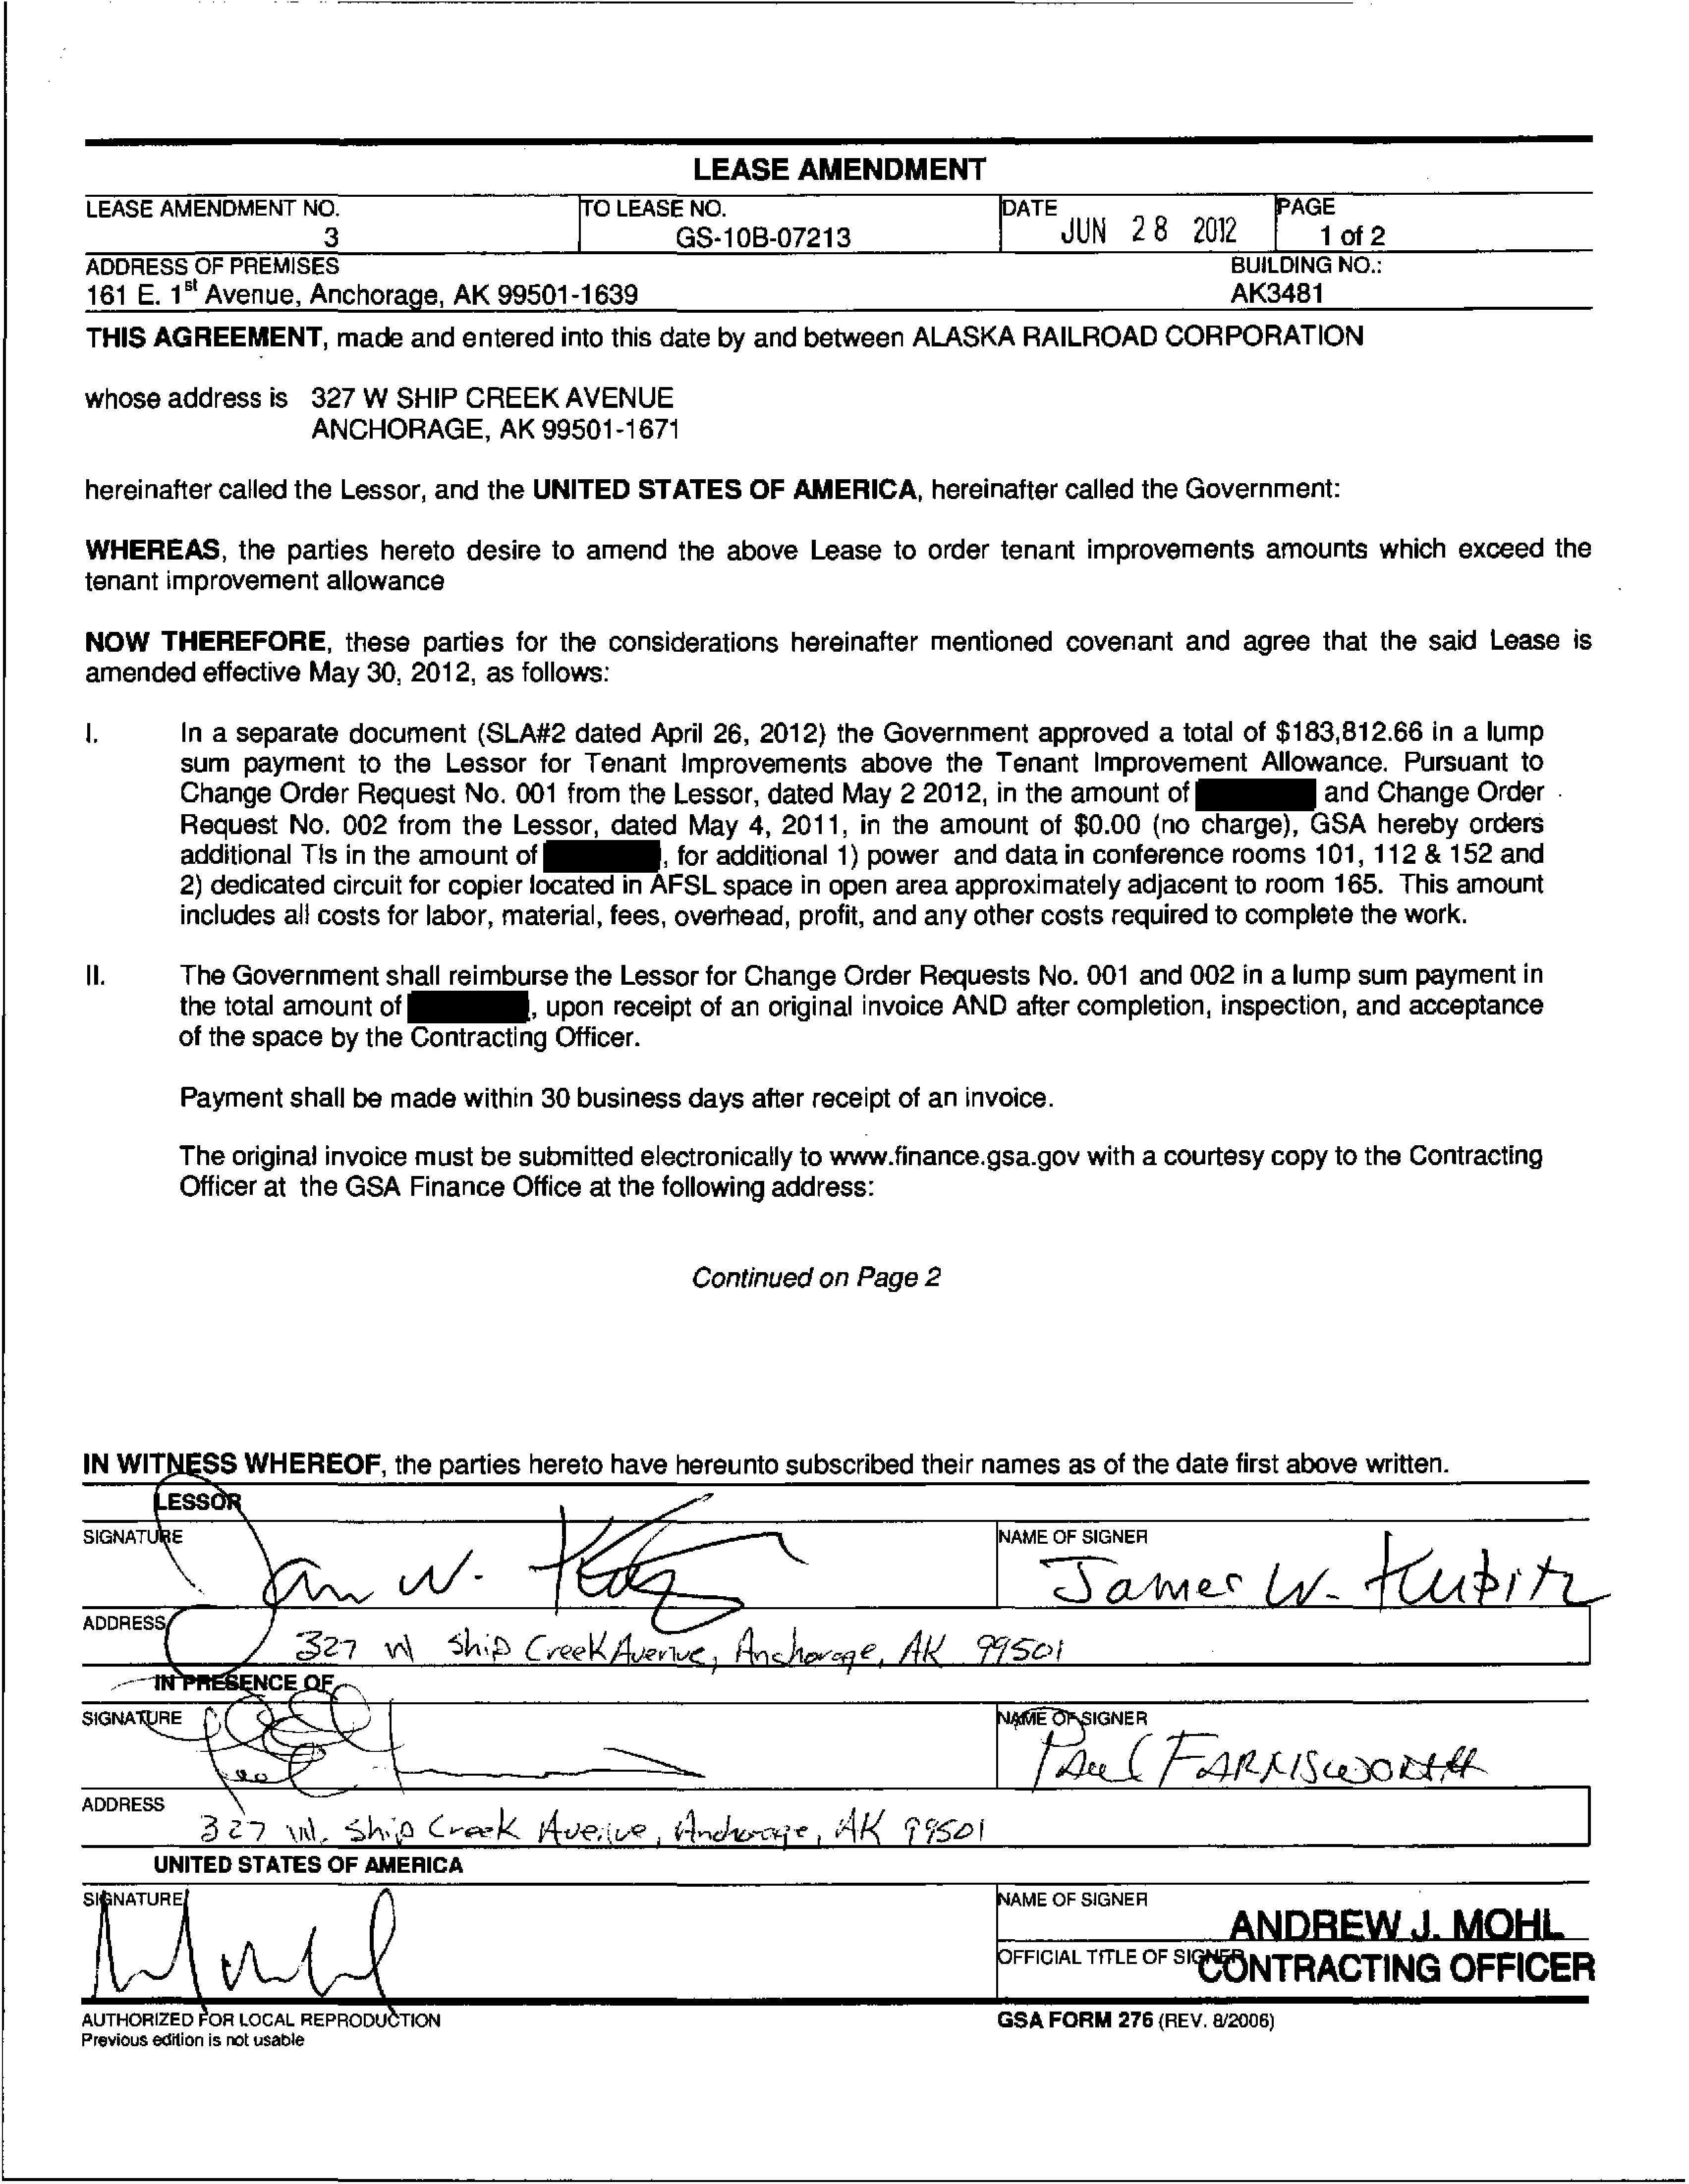 LEASE AMENDMENT
LEASE AMENDMENT NO. TO LEASE NO. DATE PAGE
3 GS-10B-07213 JUN 28 2012 1 of 2
ADDRESS OF PREMISES BUILDING NO.:
161 E. 1st Avenue, Anchorage, AK 99501-1639 AK3481
THIS AGREEMENT, made and entered into this date by and between ALASKA RAILROAD CORPORATION
whose address is 327 W SHIP CREEK AVENUE
ANCHORAGE, AK 99501-1671
hereinafter called the Lessor, and the UNITED STATES OF AMERICA, hereinafter called the Government:
WHEREAS, the parties hereto desire to amend the above Lease to order tenant improvements amounts which exceed the
tenant improvement allowance
NOW THEREFORE, these parties for the considerations hereinafter mentioned covenant and agree that the said Lease is
amended effective May 30, 2012, as follows:
I. In a separate document (SLA#2 dated April 26, 2012) the Government approved a total of $183,812.66 in a lump
sum payment to the Lessor for Tenant Improvements above the Tenant Improvement Allowance. Pursuant to
Change Order Request No. 001 from the Lessor, dated May 2 2012, in the amount of and Change Order
Request No. 002 from the Lessor, dated May 4, 2011, in the amount of $0.00 (no charge), GSA hereby orders
additional TIs in the amount of , for additional 1) power and data in conference rooms 101, 112 & 152 and
2) dedicated circuit for copier located in AFSL space in open area approximately adjacent to room 165. This amount
includes all costs for labor, material, fees, overhead, profit, and any other costs required to complete the work.
II. The Government shall reimburse the Lessor for Change Order Requests No. 001 and 002 in a lump sum payment in
the total amount of , upon receipt of an original invoice AND after completion, inspection, and acceptance
of the space by the Contracting Officer.
Payment shall be made within 30 business days after receipt of an invoice.
The original invoice must be submitted electronically to www.finance.gsa.gov with a courtesy copy to the Contracting
Officer at the GSA Finance Office at the following address:
Continued on Page 2
IN WITNESS WHEREOF, the parties hereto have hereunto subscribed their names as of the date first above written.
LESSOR
SIGNATURE NAME OF SIGNER
James W. Kubitz
ADDRESS
327 W Ship Creek Avenue, Anchorage, AK 99501
IN PRESENCE OF
SIGNATURE NAME OF SIGNER
Paul FARNSWORTH
ADDRESS
327 W. Ship Creek Avenue, Anchorage, AK 99501
UNITED STATES OF AMERICA
SIGNATURE NAME OF SIGNER
ANDREW J. MOHL
OFFICIAL TITLE OF SIGNER CONTRACTING OFFICER
AUTHORIZED FOR LOCAL REPRODUCTION GSA FORM 276 (REV. 8/2006)
Previous edition is not usable